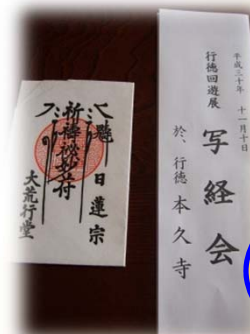 平成三十年 十一月十日
行徳回遊展
写経会
於、行徳 本久寺
日蓮宗
祈祷
大荒行堂